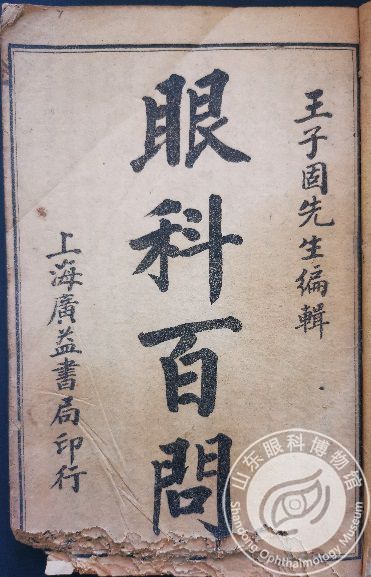 王子固先生編輯
眼科百問
上海廣益書局印行
山东眼科博物馆
Shandong Ophthalmology Museum